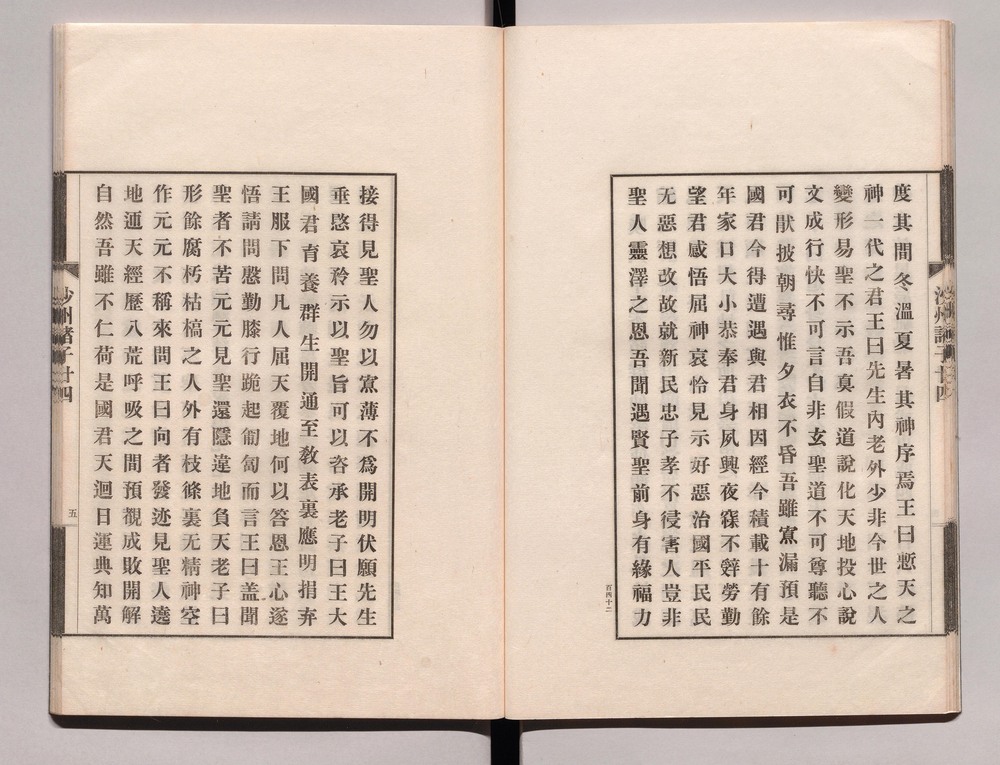 度其間冬溫夏暑其神序焉王曰慙天之
神一代之君王曰先生內老外少非今世之人
變形易聖不示吾真假道說化天地投心說
文成行快不可言自非玄聖道不可尊聽不
可猒披朝尋惟夕衣不昏吾雖寡漏預是
國君今得遭遇與君相因經今積載十有餘
年家口大小恭奉君身夙興夜寐不辤勞勤
望君感悟屈神哀怜見示好惡治國平民民
无惡想改故就新民忠子孝不侵害人豈非
聖人靈澤之恩吾聞遇賢聖前身有緣福力
百四十二
沙州諸子廿四
接得見聖人勿以寡薄不爲開明伏願先生
垂愍哀矜示以聖旨可以咨承老子曰王大
國君育養群生開通至教表裏應明捐弃
王服下問凡人屈天覆地何以答恩王心遂
悟請問慇勤膝行跪起匍匐而言王曰盖聞
聖者不苦元元見聖還隱違地負天老子曰
形餘腐朽枯槁之人外有枝條裏无精神空
作元元不稱來問王曰向者發迹見聖人遶
地通天經歷八荒呼吸之間預觀成敗開解
自然吾雖不仁荷是國君天迴日運典知萬
沙州諸子廿四
五